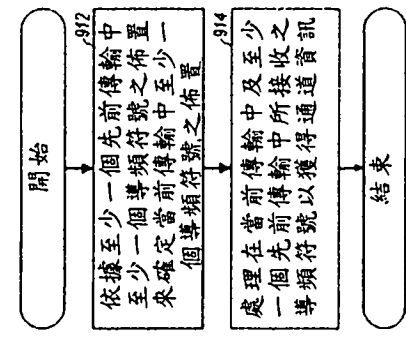 開始
912
依據至少一個先前傳輸中
至少一個導頻符號之佈置
來確定當前傳輸中至少一
個導頻符號之佈置
914
處理在當前傳輸中及至少
一個先前傳輸中所接收之
導頻符號以獲得通道資訊
結束